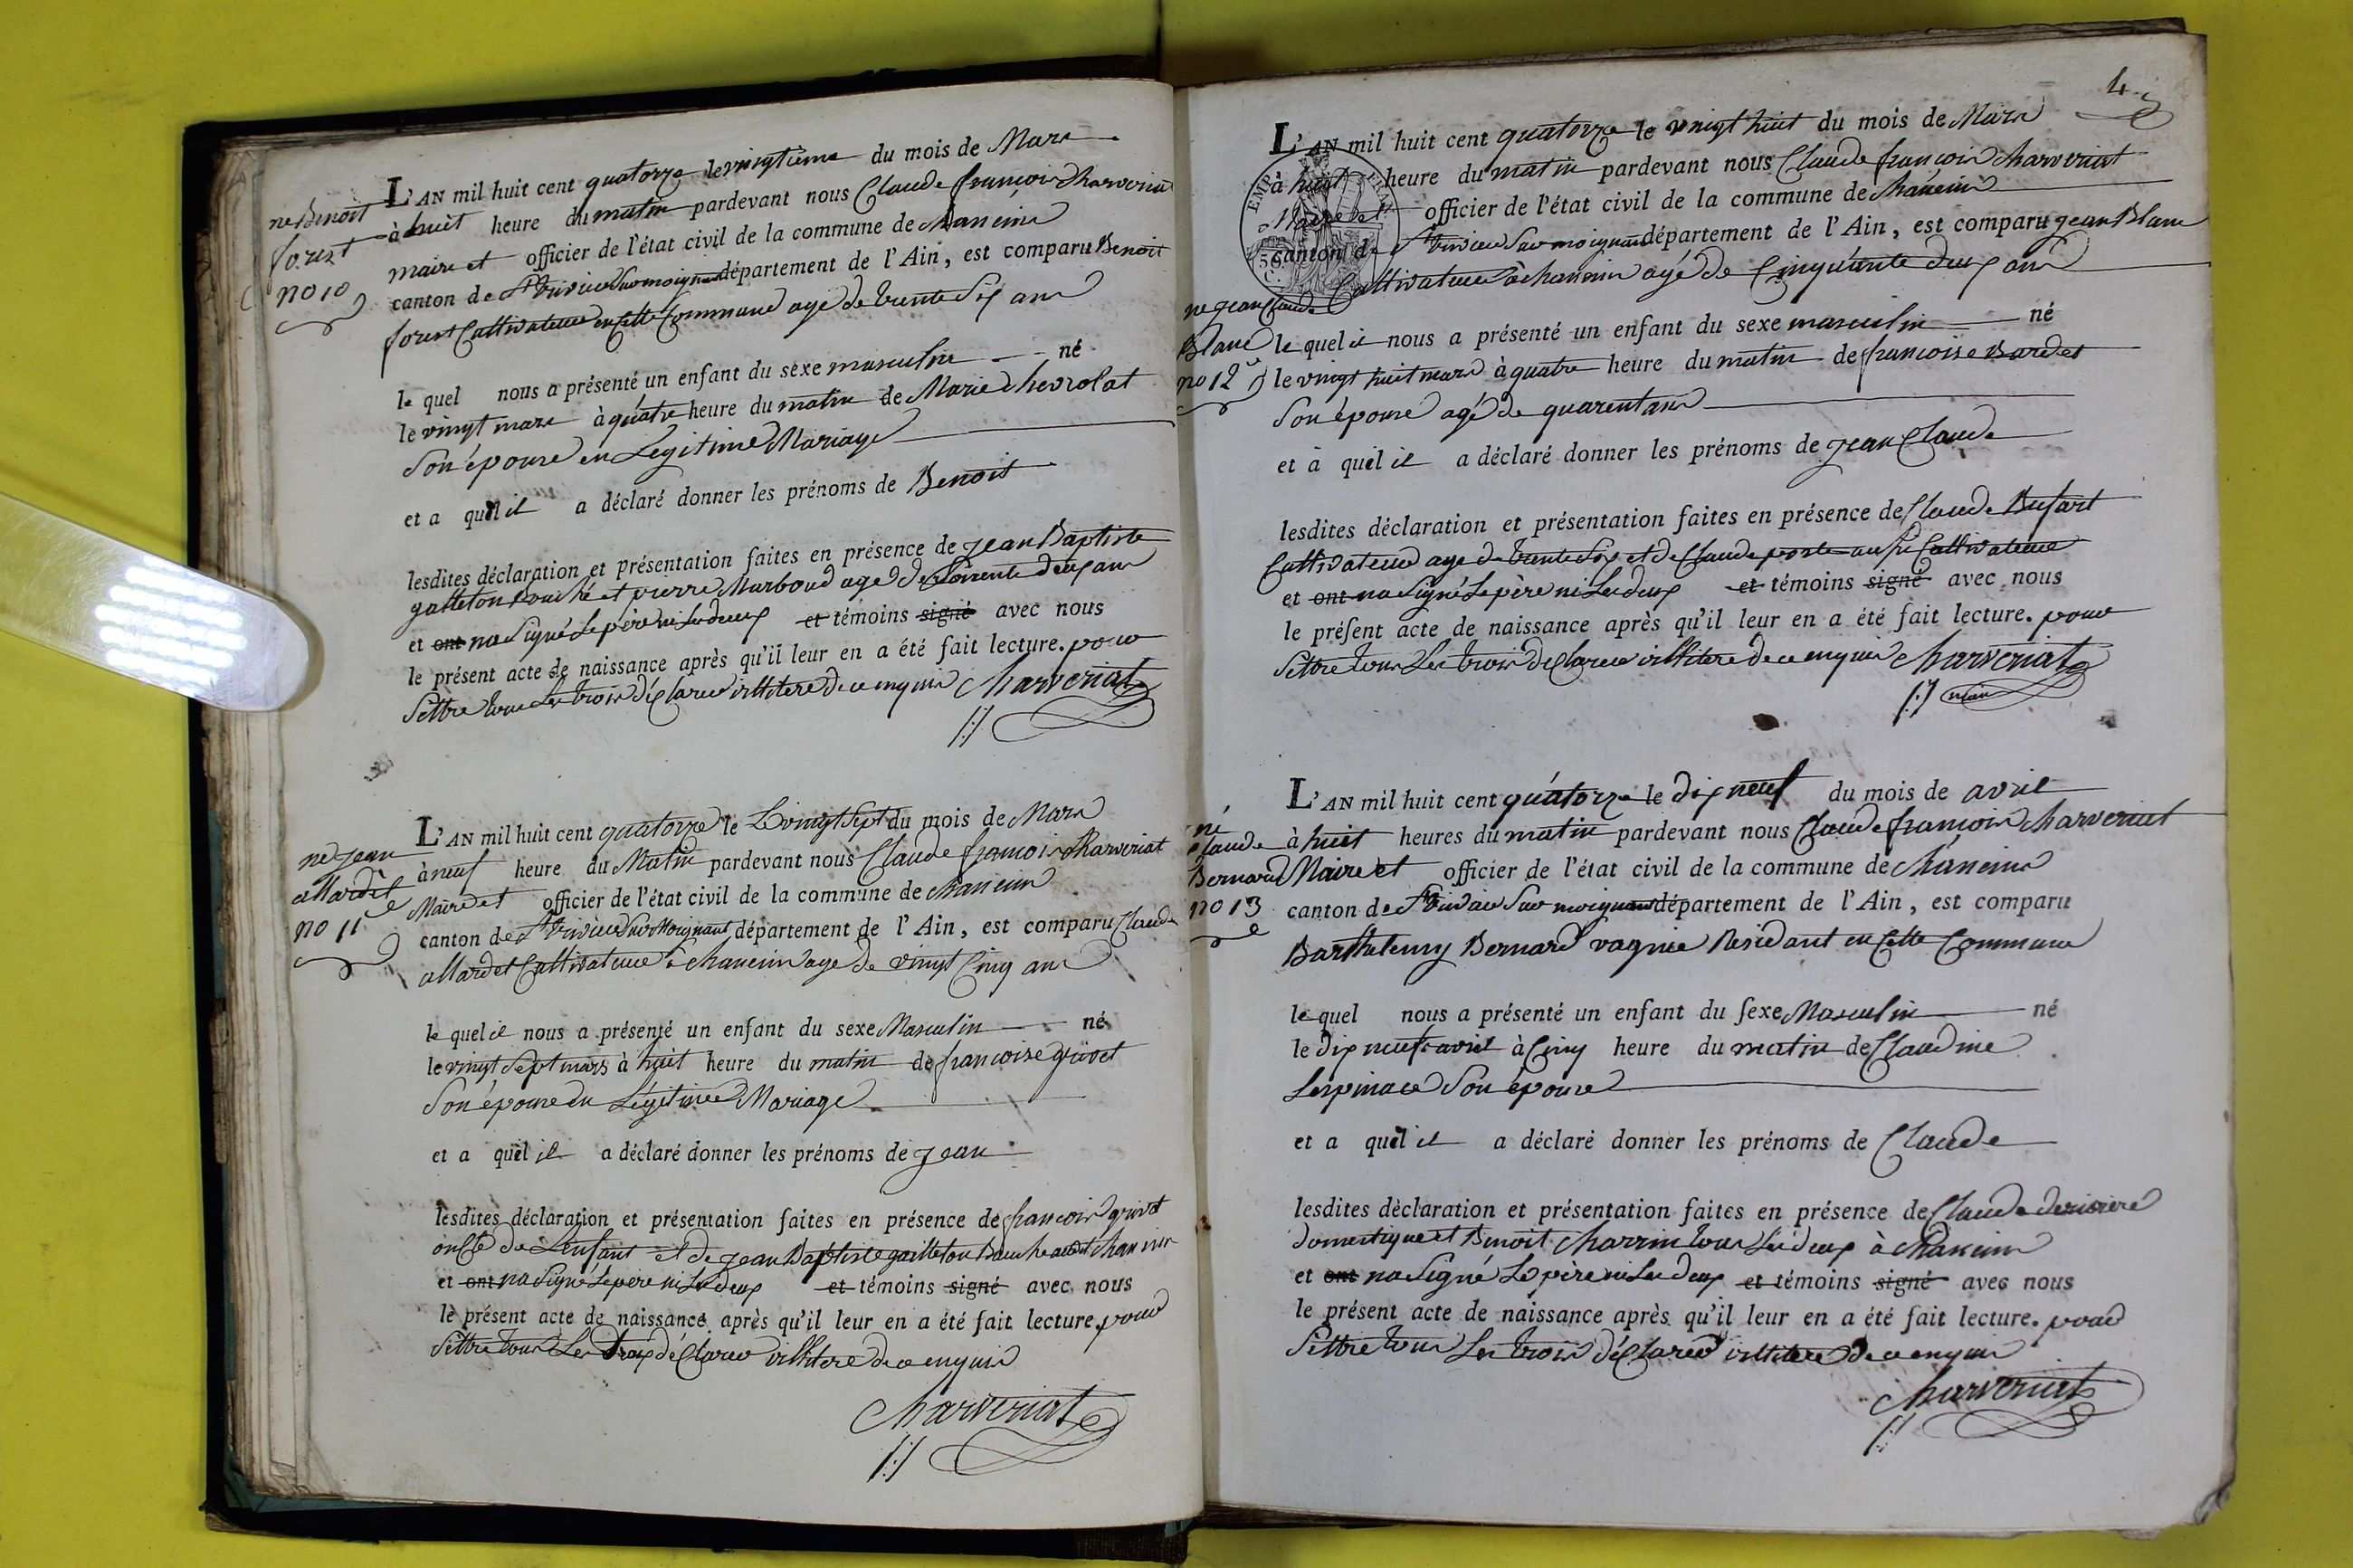 né Benoit
forest
no 10
L'AN mil huit cent quatorze le vingtième du mois de Mars
à huit heure du matin pardevant nous Claude françois Charveriat
maire et officier de l'état civil de la commune de Chaneins
canton de St trivier Sur moignans département de l'Ain, est comparu Benoit
forest Cultivateur en Cette Commune age de trente Six ans
le quel nous a présenté un enfant du sexe masculin né
le vingt mars à quatre heure du matin de Marie Chevrolat
Son épouse en Légitime Mariage
et a quel il a déclaré donner les prénoms de Benoit
lesdites déclaration et présentation faites en présence de jean Baptiste
galleton et pierre Marboud age de Soixente deux ans
et ont na Signé Le père ni Les deux et témoins signé avec nous
le présent acte de naissance après qu'il leur en a été fait lecture. pour
Settre tous Les trois déclarer illitere de ce enquis Charveriat
né jean
allardet
no 11
L'AN mil huit cent quatorze le Le vingt Sept du mois de Mars
à neuf heure du Matin pardevant nous Claude françois Charveriat
Maire et officier de l'état civil de la commune de Chaneins
canton de St trivier Sur Moignans département de l'Ain, est comparu Claude
allardet Cultivateur à Chaneins age de vingt Cinq ans
le quel il nous a présenté un enfant du sexe Masculin né
le vingt Sept mars à huit heure du matin de francoise grivet
Son épouse en Légitime Mariage
et a quel il a déclaré donner les prénoms de jean
lesdites déclaration et présentation faites en présence de francois grivet
oncle de Lenfant et de jean Baptiste gailleton Chaneins
et ont na Signé Le père ni Les deux et témoins signé avec nous
le présent acte de naissance après qu'il leur en a été fait lecture pour
Settre tous Les déclarer illitere de ce enquis
Charveriat
4
L'AN mil huit cent quatorze le vingt huit du mois de Mars
à huit heure du matin pardevant nous Claude françois Charveriat
Maire et officier de l'état civil de la commune de Chaneins
canton de St trivier Sur moignans département de l'Ain, est comparu jean Blanc
Cultivateur à Chaneins agé de Cinquante deux ans
né jean Claude
Blanc
no 12
le quel il nous a présenté un enfant du sexe masculin né
le vingt huit mars à quatre heure du matin de francoise Bardet
Son épouse agé de quarent ans
et à quel il a déclaré donner les prénoms de jean Claude
lesdites déclaration et présentation faites en présence de Claude Dufart
Cultivateur age de trente Six et de Claude poste aussi Cultivateur
et ont na Signé Le père ni Les deux et témoins signé avec nous
le présent acte de naissance après qu'il leur en a été fait lecture. pour
Settre tous Les trois déclarer illitere de ce enquis Charveriat
maire
né
Claude
Bernard
no 13
L'AN mil huit cent quatorze le dix neuf du mois de avril
à huit heures du matin pardevant nous Claude françois Charveriat
Maire et officier de l'état civil de la commune de Chaneins
canton de St trivier Sur moignans département de l'Ain, est comparu
Barthelemy Bernard vagnie Residant en Cette Commune
le quel nous a présenté un enfant du sexe Masculin né
le dix neuf avril à Cinq heure du matin de Claudine
Lespinace Son épouse
et a quel il a déclaré donner les prénoms de Claude
lesdites déclaration et présentation faites en présence de Claude
domestique et Benoit Charrin tous Les deux à Chaneins
et ont na Signé Le père ni Les deux et témoins signé avec nous
le présent acte de naissance après qu'il leur en a été fait lecture. pour
Settre tous Les trois déclarer illitere de ce enquis
Charveriat